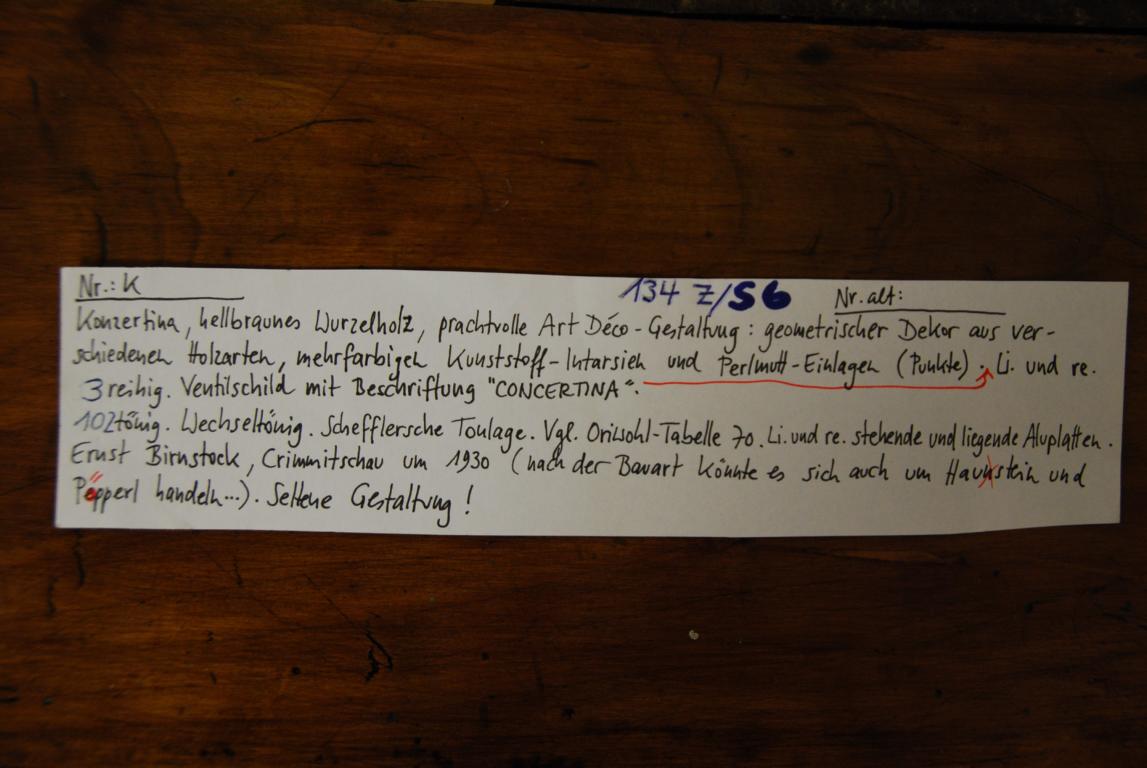 Nr.: K 134 Z/S6 Nr. alt:
Konzertina, hellbraunes Wurzelholz, prachtvolle Art Déco-Gestaltung: geometrischer Dekor aus ver-
schiedenen Holzarten, mehrfarbigen Kunststoff-Intarsien und Perlmutt-Einlagen (Punkte). Li. und re.
3reihig. Ventilschild mit Beschriftung "CONCERTINA".
102tönig. Wechseltönig. Schefflersche Tonlage. Vgl. Oriwohl-Tabelle 70. Li. und re. stehende und liegende Aluplatten.
Ernst Birnstock, Crimmitschau um 1930 (nach der Bauart könnte es sich auch um Haustein und
Pöpperl handeln...). Seltene Gestaltung!